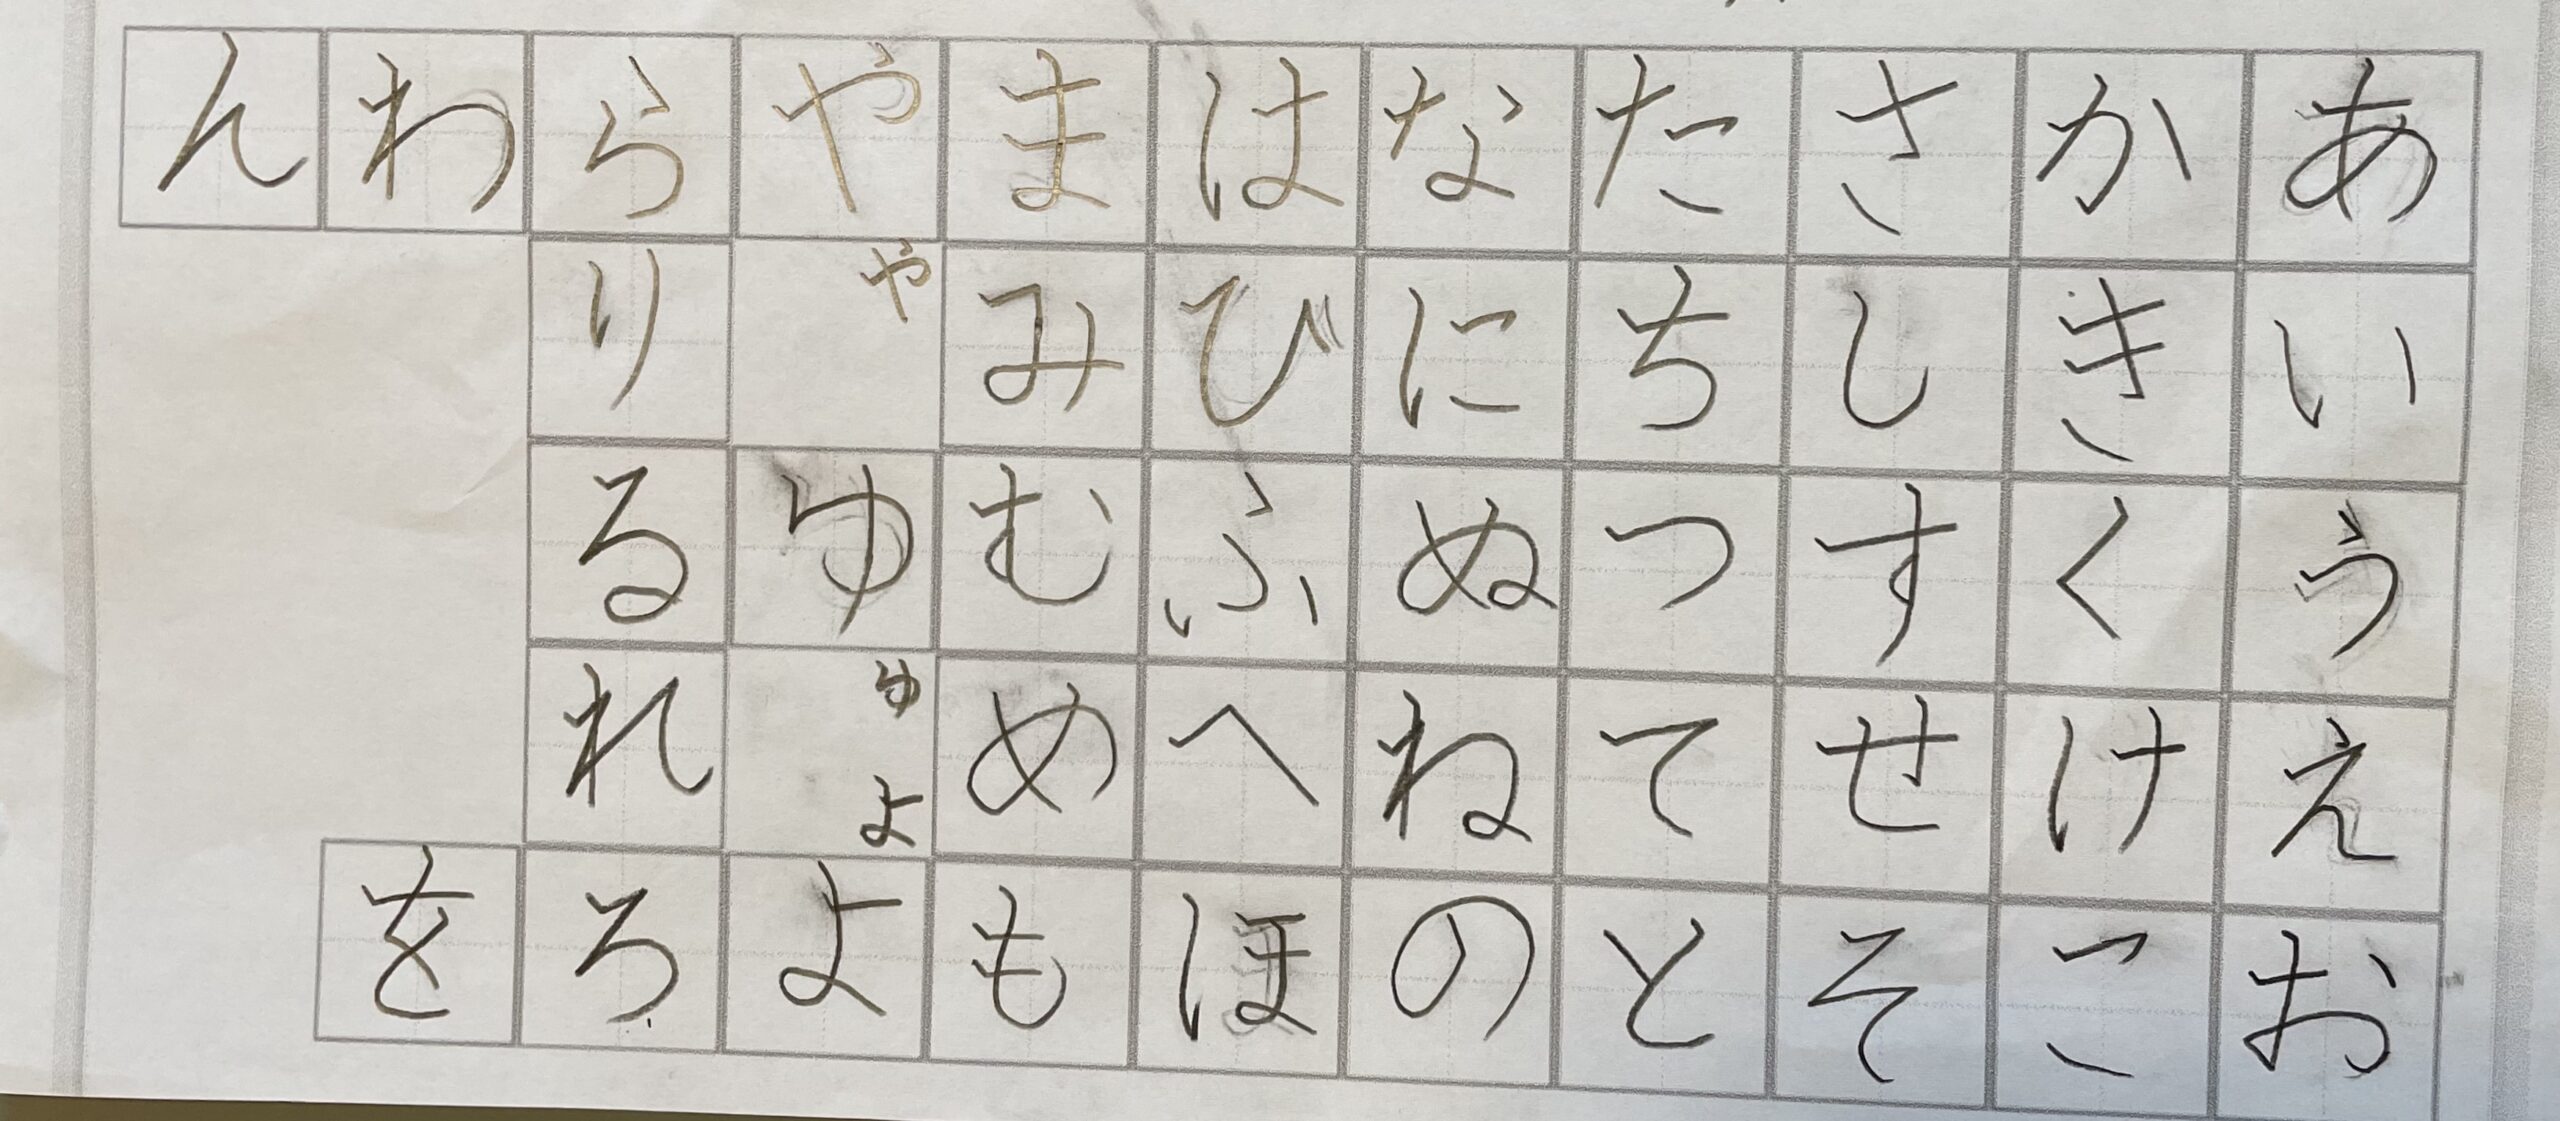 あいうえお
かきくけこ
さしすせそ
たちつてと
なにぬねの
はひふへほ
まみむめも
やゃゆゅょよ
らりるれろ
わを
ん